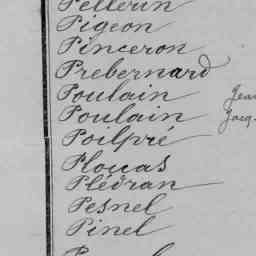 Pellerin
Pigeon
Pinceron
Prebernard
Poulain
Poulain
Poilpré
Plouas
Plédran
Pesnel
Pinel